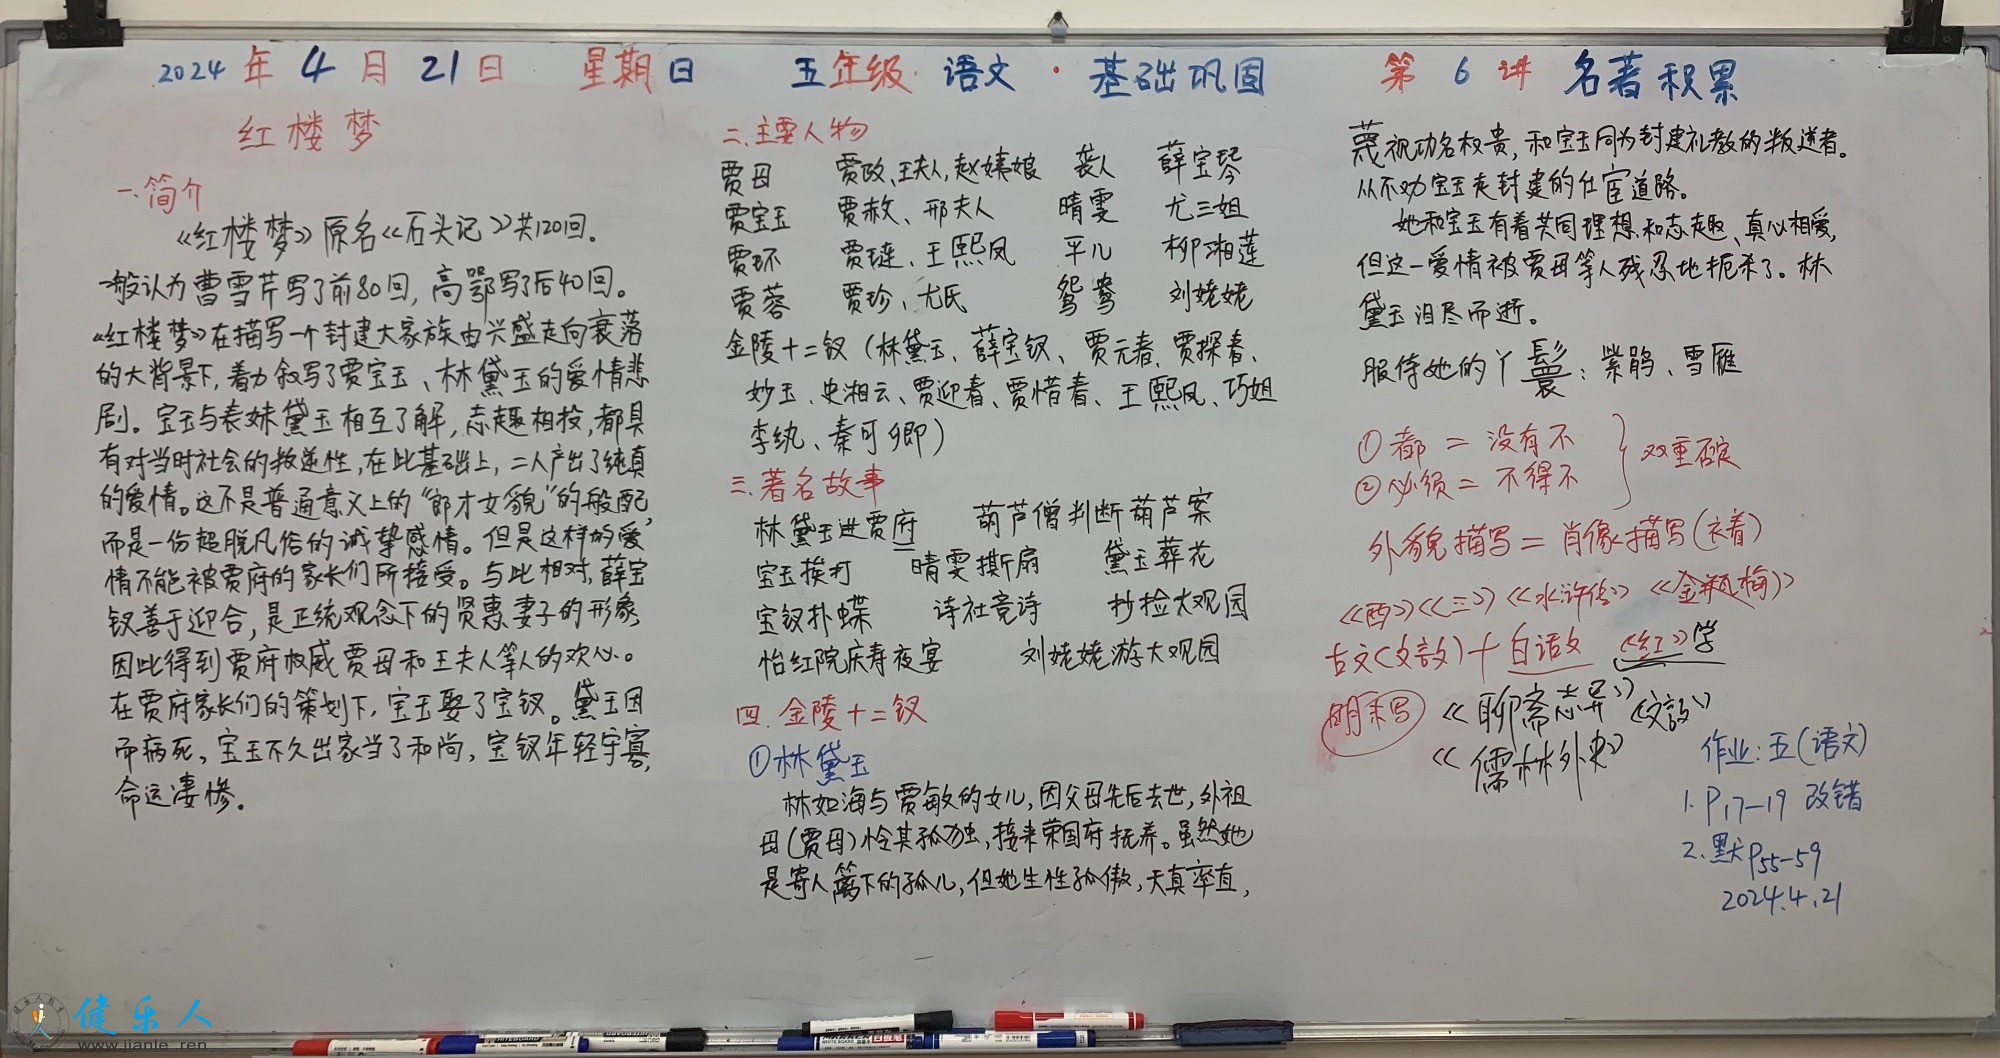 2024年4月21日 星期日 五年级·语文·基础巩固 第6讲 名著积累
红楼梦
一.简介
《红楼梦》原名《石头记》共120回。
一般认为曹雪芹写了前80回,高鄂写了后40回。
《红楼梦》在描写一个封建大家族由兴盛走向衰落
的大背景下,着力叙写了贾宝玉、林黛玉的爱情悲
剧。宝玉与表妹黛玉相互了解,志趣相投,都具
有对当时社会的叛逆性,在此基础上,二人产出了纯真
的爱情。这不是普通意义上的“郎才女貌”的般配,
而是一份超脱凡俗的诚挚感情。但是这样的爱
情不能被贾府的家长们所接受。与此相对,薛宝
钗善于迎合,是正统观念下的贤惠妻子的形象,
因此得到贾府权威贾母和王夫人等人的欢心。
在贾府家长们的策划下,宝玉娶了宝钗。黛玉因
而病死,宝玉不久出家当了和尚,宝钗年轻守寡,
命运凄惨。
二.主要人物
贾母 贾政、王夫人,赵姨娘 袭人 薛宝琴
贾宝玉 贾赦、邢夫人 晴雯 尤三姐
贾环 贾琏、王熙凤 平儿 柳湘莲
贾蓉 贾珍、尤氏 鸳鸯 刘姥姥
金陵十二钗(林黛玉、薛宝钗、贾元春、贾探春、
妙玉、史湘云、贾迎春、贾惜春、王熙凤、巧姐
李纨、秦可卿)
三.著名故事
林黛玉进贾府 葫芦僧判断葫芦案
宝玉挨打 晴雯撕扇 黛玉葬花
宝钗扑蝶 诗社竞诗 抄捡大观园
怡红院庆寿夜宴 刘姥姥游大观园
四.金陵十二钗
①林黛玉
林如海与贾敏的女儿,因父母先后去世,外祖
母(贾母)怜其孤独,接来荣国府抚养。虽然她
是寄人篱下的孤儿,但她生性孤傲,天真率直,
蔑视功名权贵,和宝玉同为封建礼教的叛逆者。
从不劝宝玉走封建的仕宦道路。
她和宝玉有着共同理想和志趣、真心相爱,
但这一爱情被贾母等人残忍地扼杀了。林
黛玉泪尽而逝。
服侍她的丫鬟:紫鹃、雪雁
①都=没有不
②必须=不得不
双重否定
外貌描写=肖像描写(衣着)
《西》《三》《水浒传》《金瓶梅》
古文(文言文)+白话文 《红》学
《聊斋志异》《文言文》
《儒林外史》
作业:五(语文)
1.P17—19 改错
2.默P55—59
2024.4.21
健乐人
www.jianle.ren